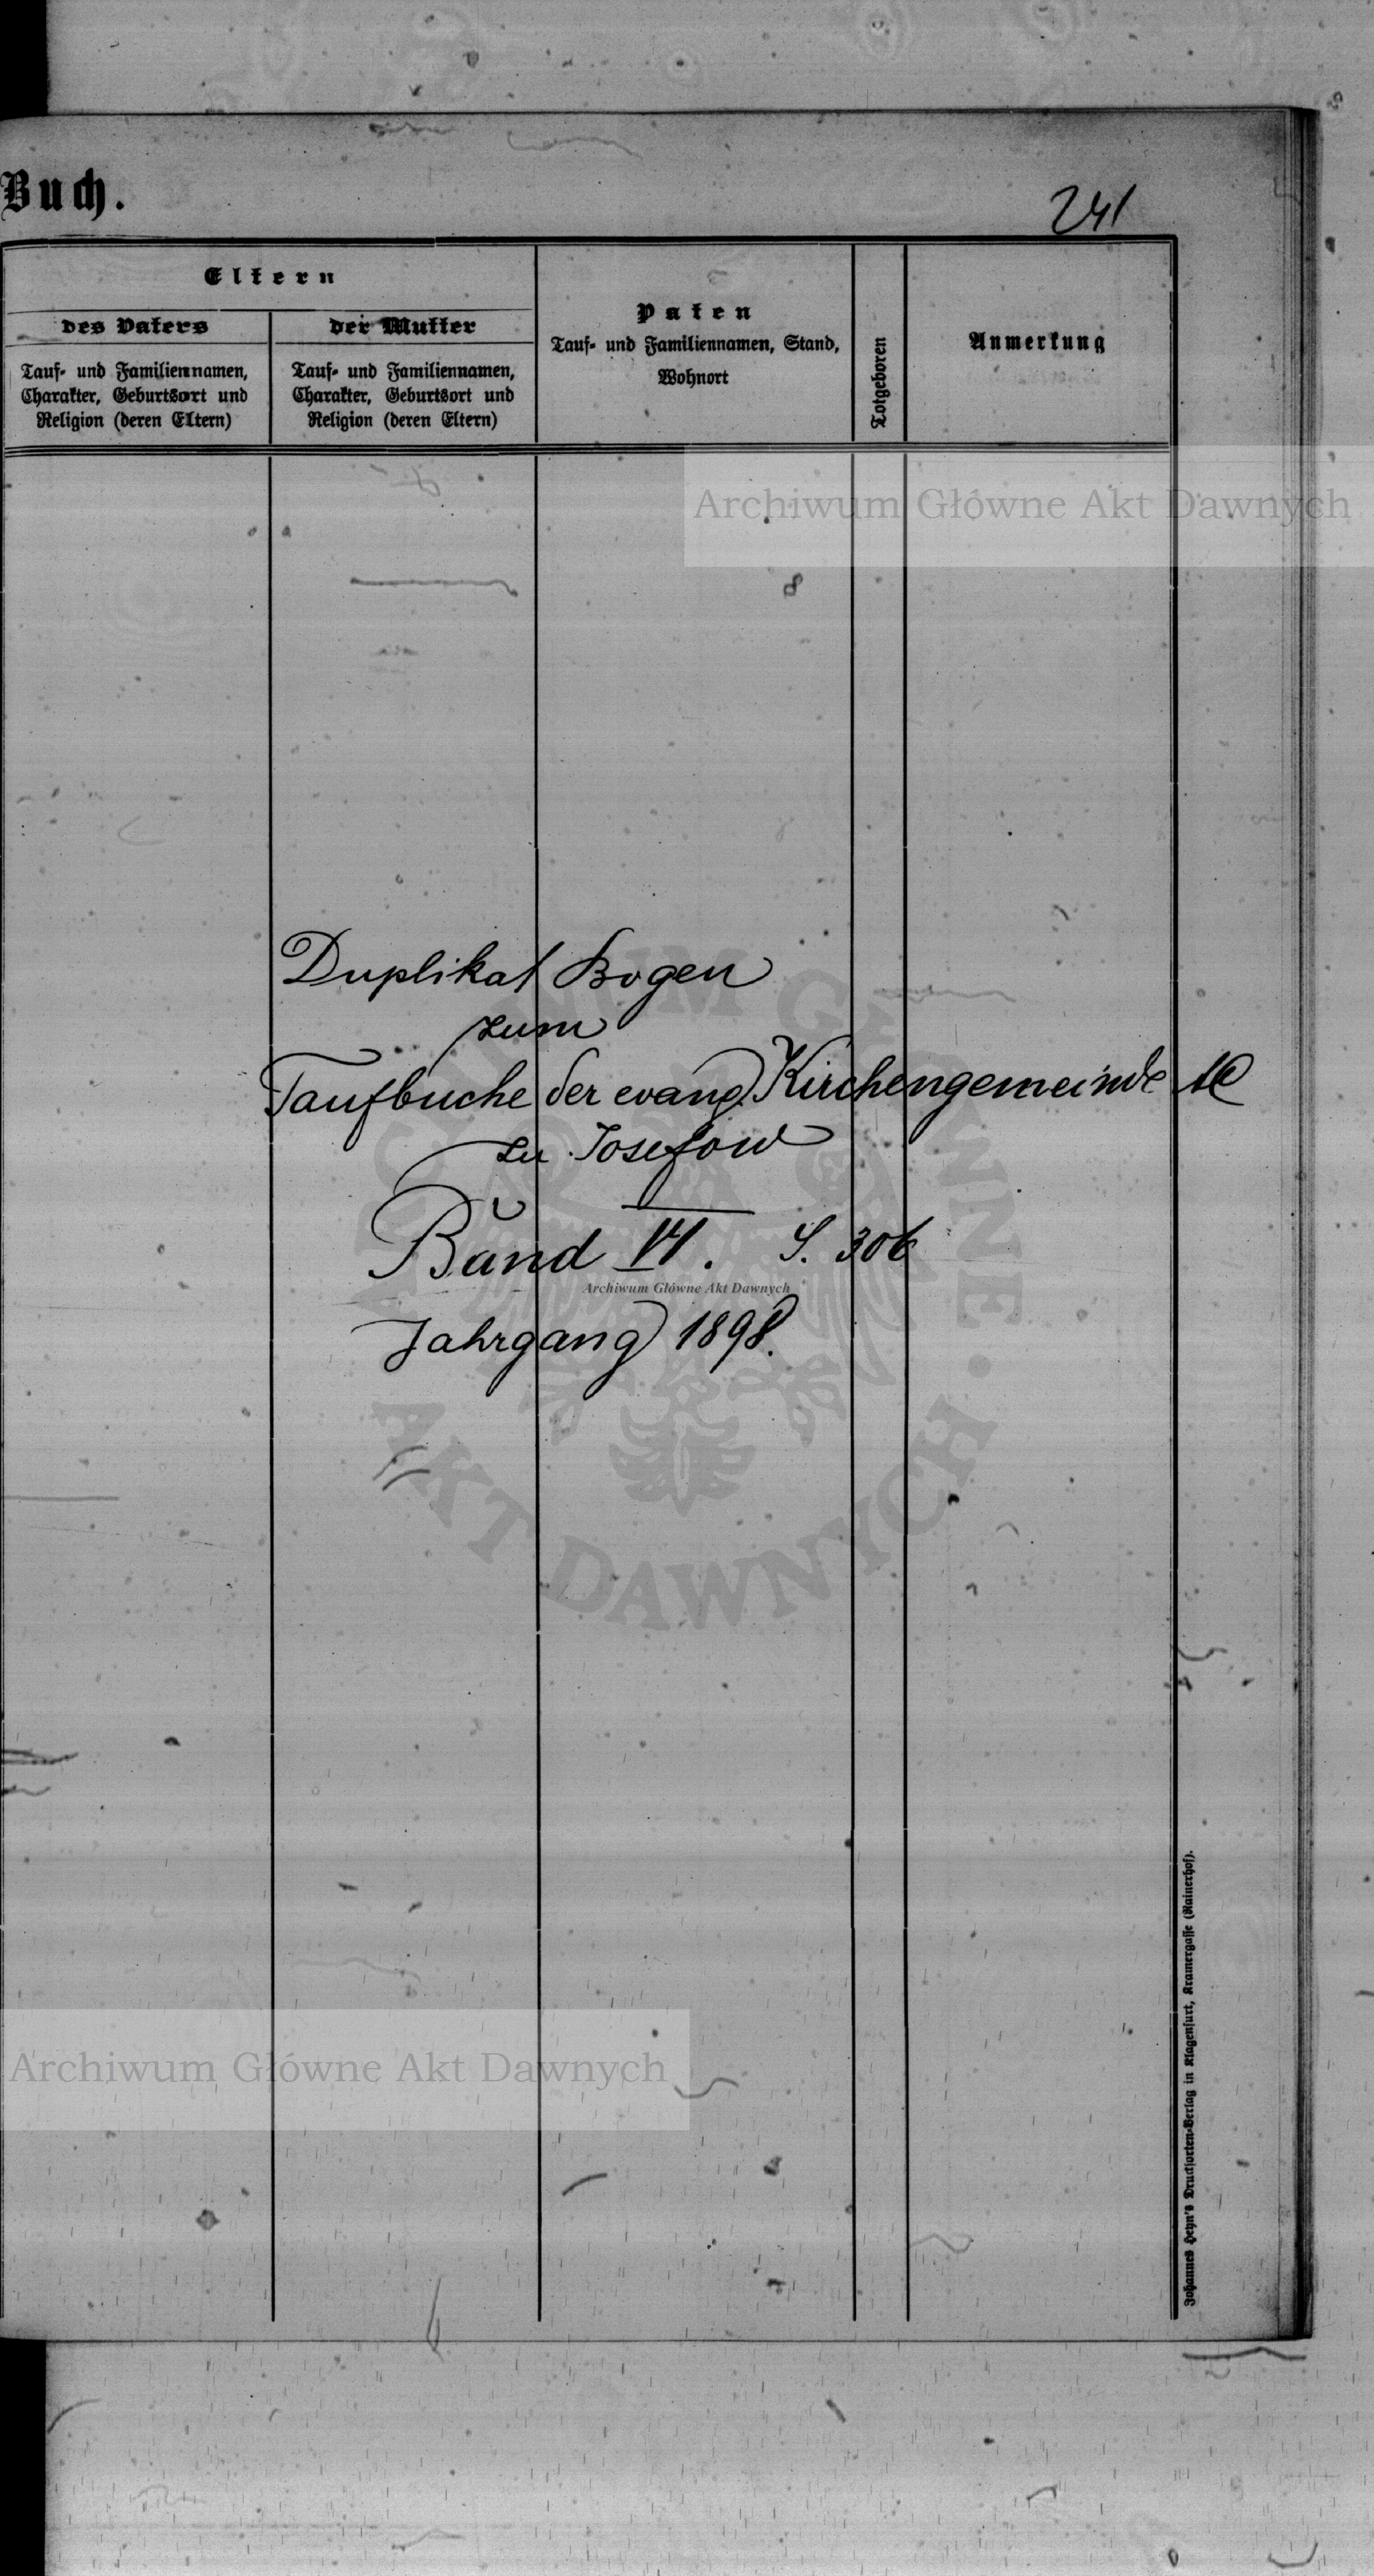 Buch.
241
Eltern
des Vaters
der Mutter
Tauf- und Familiennamen,
Charakter, Geburtsort und
Religion (deren Eltern)
Tauf- und Familiennamen,
Charakter, Geburtsort und
Religion (deren Eltern)
Paten
Tauf- und Familiennamen, Stand,
Wohnort
Totgeboren
Anmerkung
Archiwum Główne Akt Dawnych
Duplikat Bogen
zum
Taufbuche der evang. Kirchengemeinde
zu Josefow
Band VI. S. 306
Archiwum Główne Akt Dawnych
Jahrgang 1898.
AKT DAWNYCH
Archiwum Główne Akt Dawnych
Johannes Heyn's Drucksorten-Verlag in Klagenfurt, Kramergasse (Rainerhof).